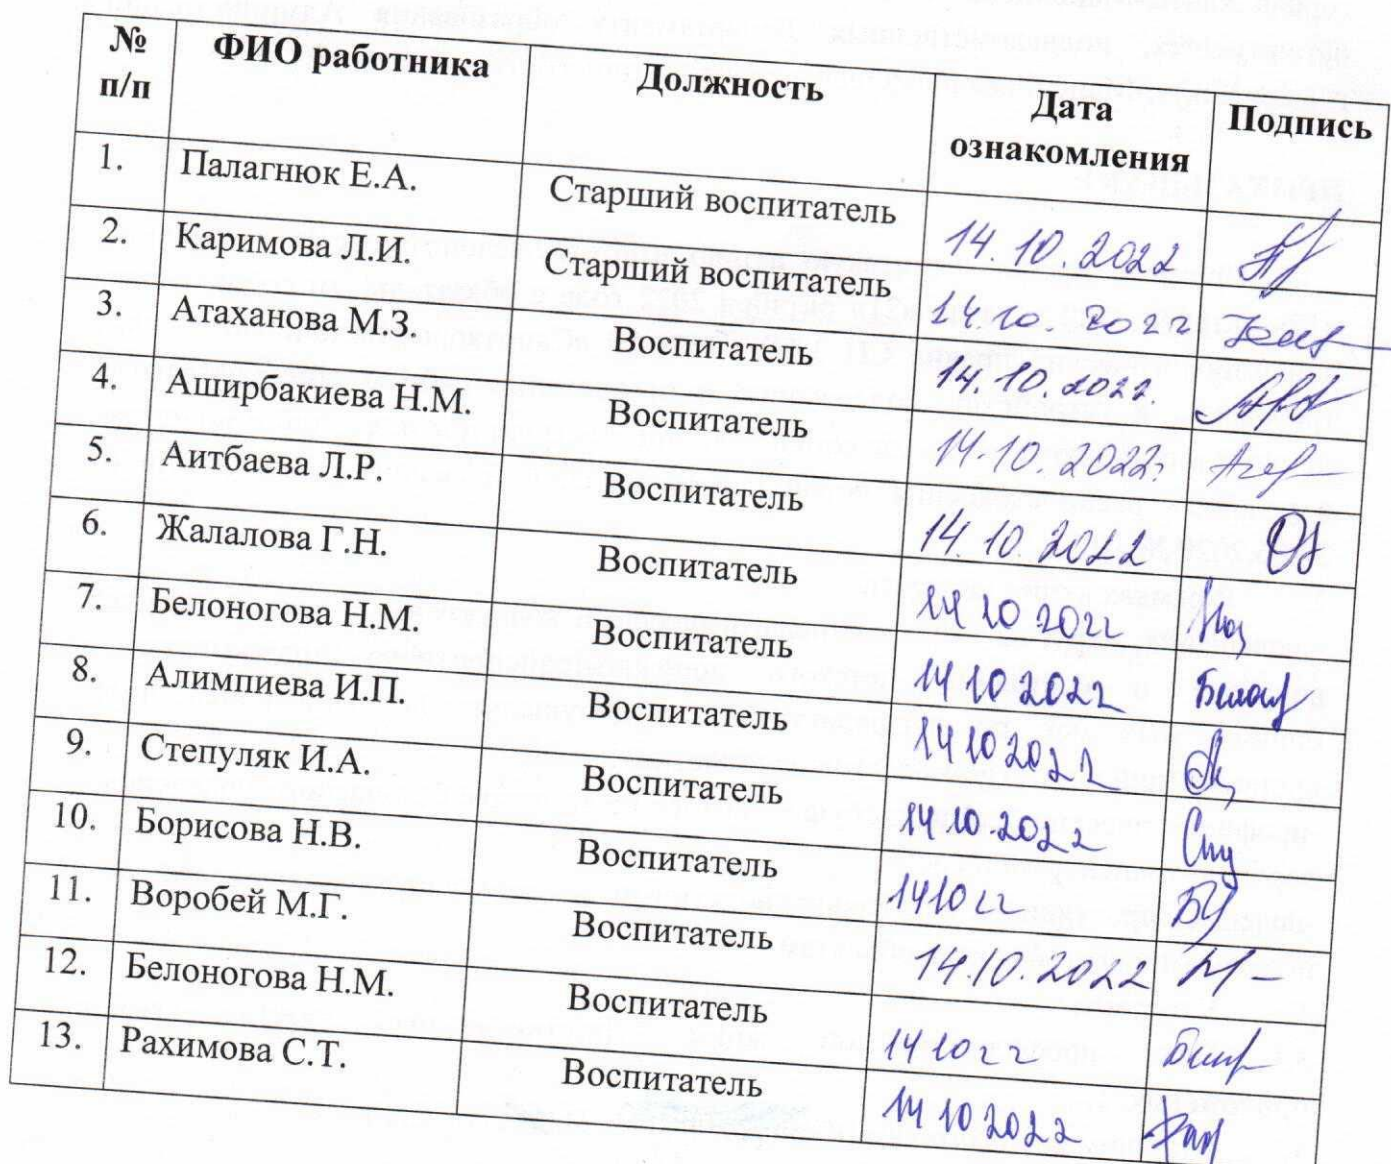 № п/п ФИО работника Должность Дата ознакомления Подпись
1. Палагнюк Е.А. Старший воспитатель 14.10.2022
2. Каримова Л.И. Старший воспитатель 14.10 2022
3. Атаханова М.З. Воспитатель 14.10.2022.
4. Аширбакиева Н.М. Воспитатель 14.10.2022
5. Аитбаева Л.Р. Воспитатель 14.10.2022
6. Жалалова Г.Н. Воспитатель 14 10 2022
7. Белоногова Н.М. Воспитатель 14 10 2022
8. Алимпиева И.П. Воспитатель 14 10 2022
9. Степуляк И.А. Воспитатель 14 10.2022
10. Борисова Н.В. Воспитатель 14 10 22
11. Воробей М.Г. Воспитатель 14.10.2022
12. Белоногова Н.М. Воспитатель 14 10 22
13. Рахимова С.Т. Воспитатель 14 10 2022